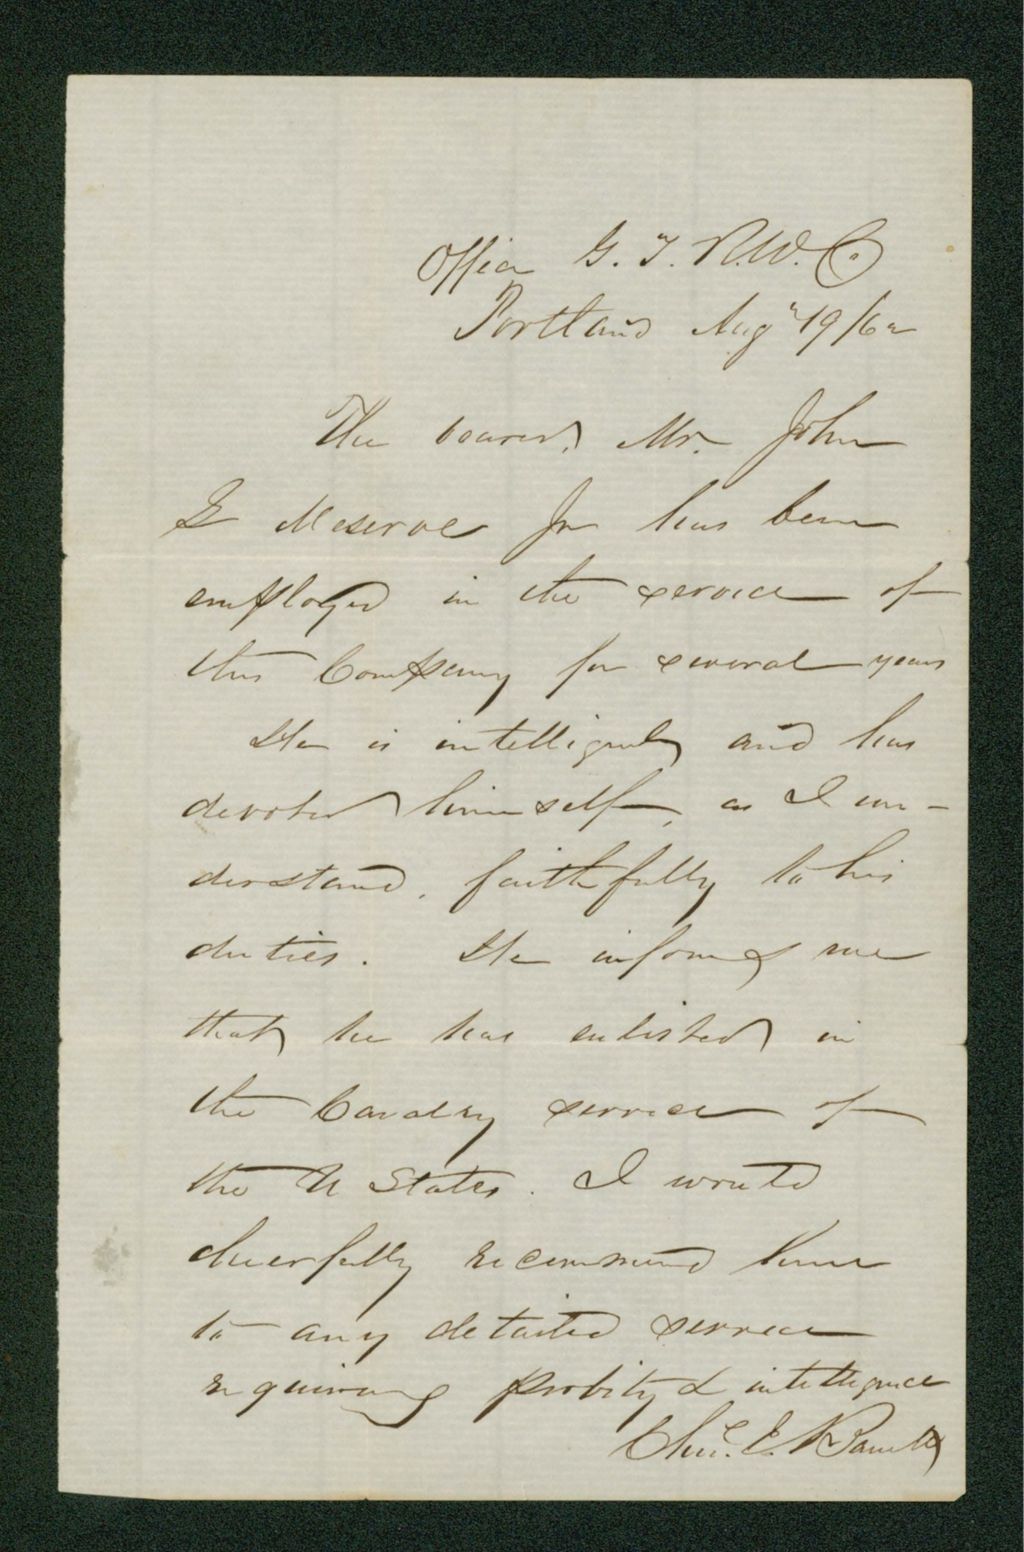 Office G. T. R. W. Co
Portland Aug 19/62
The bearer, Mr. John
G Meserve Jr has been
employed in the service of
this Company for several years
He is intelligent and has
devoted himself, as I un-
derstand, faithfully to his
duties. He informs me
that he has enlisted in
the Cavalry service of
the U States. I would
cheerfully recommend him
to any detailed service
requiring probity & intelligence
Chas. E. Barrett